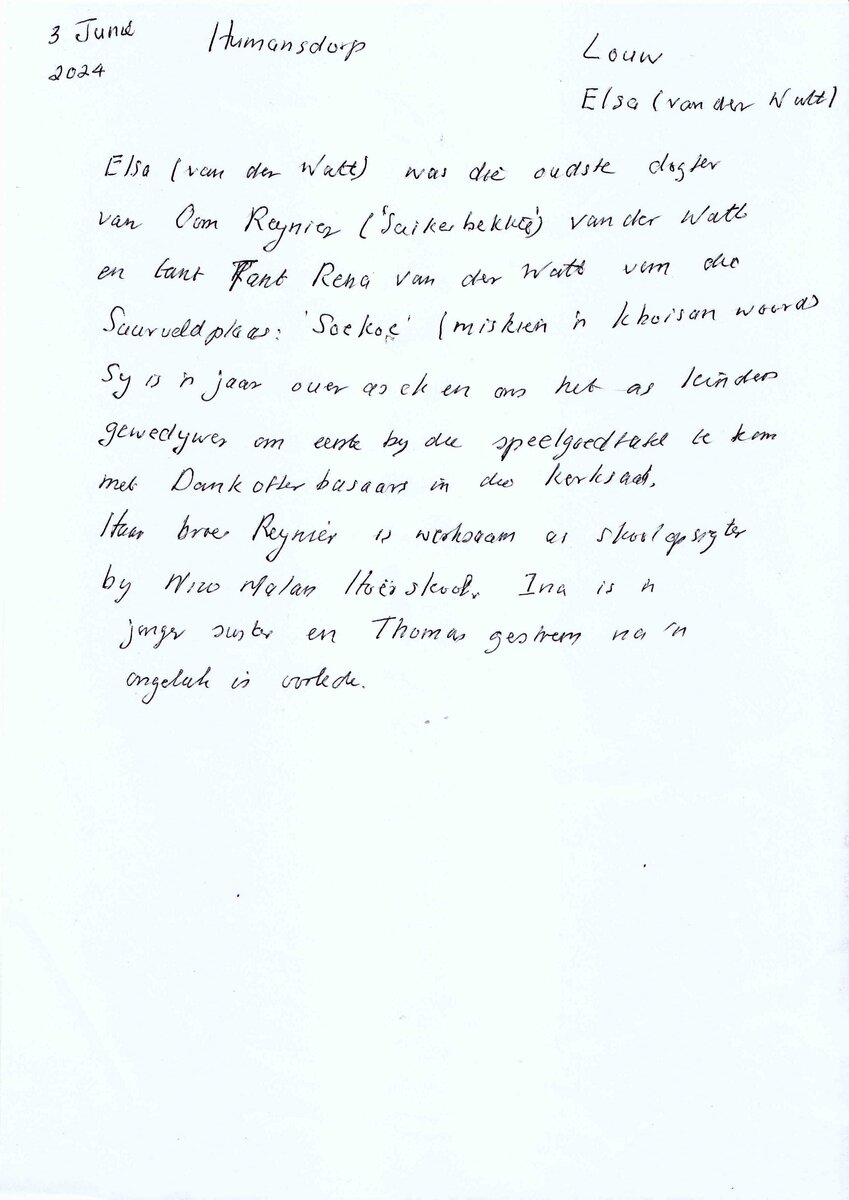 3 June Humansdorp Louw
2024 Elsa (van der Watt)
Elsa (van der Watt) was die oudste dogter
van Oom Reynier ('Suikerbekkie') van der Watt
en tant Tant Rena van der Watt van die
Suurveldplaas: 'Soekoe' (miskien 'n Khoisan woord)
Sy is 'n jaar ouer as ek en ons het as kinders
gewedywer om eerste by die speelgoedtafel te kom
met Dankoffer basaars in die kerksaal.
Haar broer Reynier is werksaam as skoolopsigter
by Nico Malan Hoërskool. Ina is 'n
jonger suster en Thomas gestrem na 'n
ongeluk is oorlede.